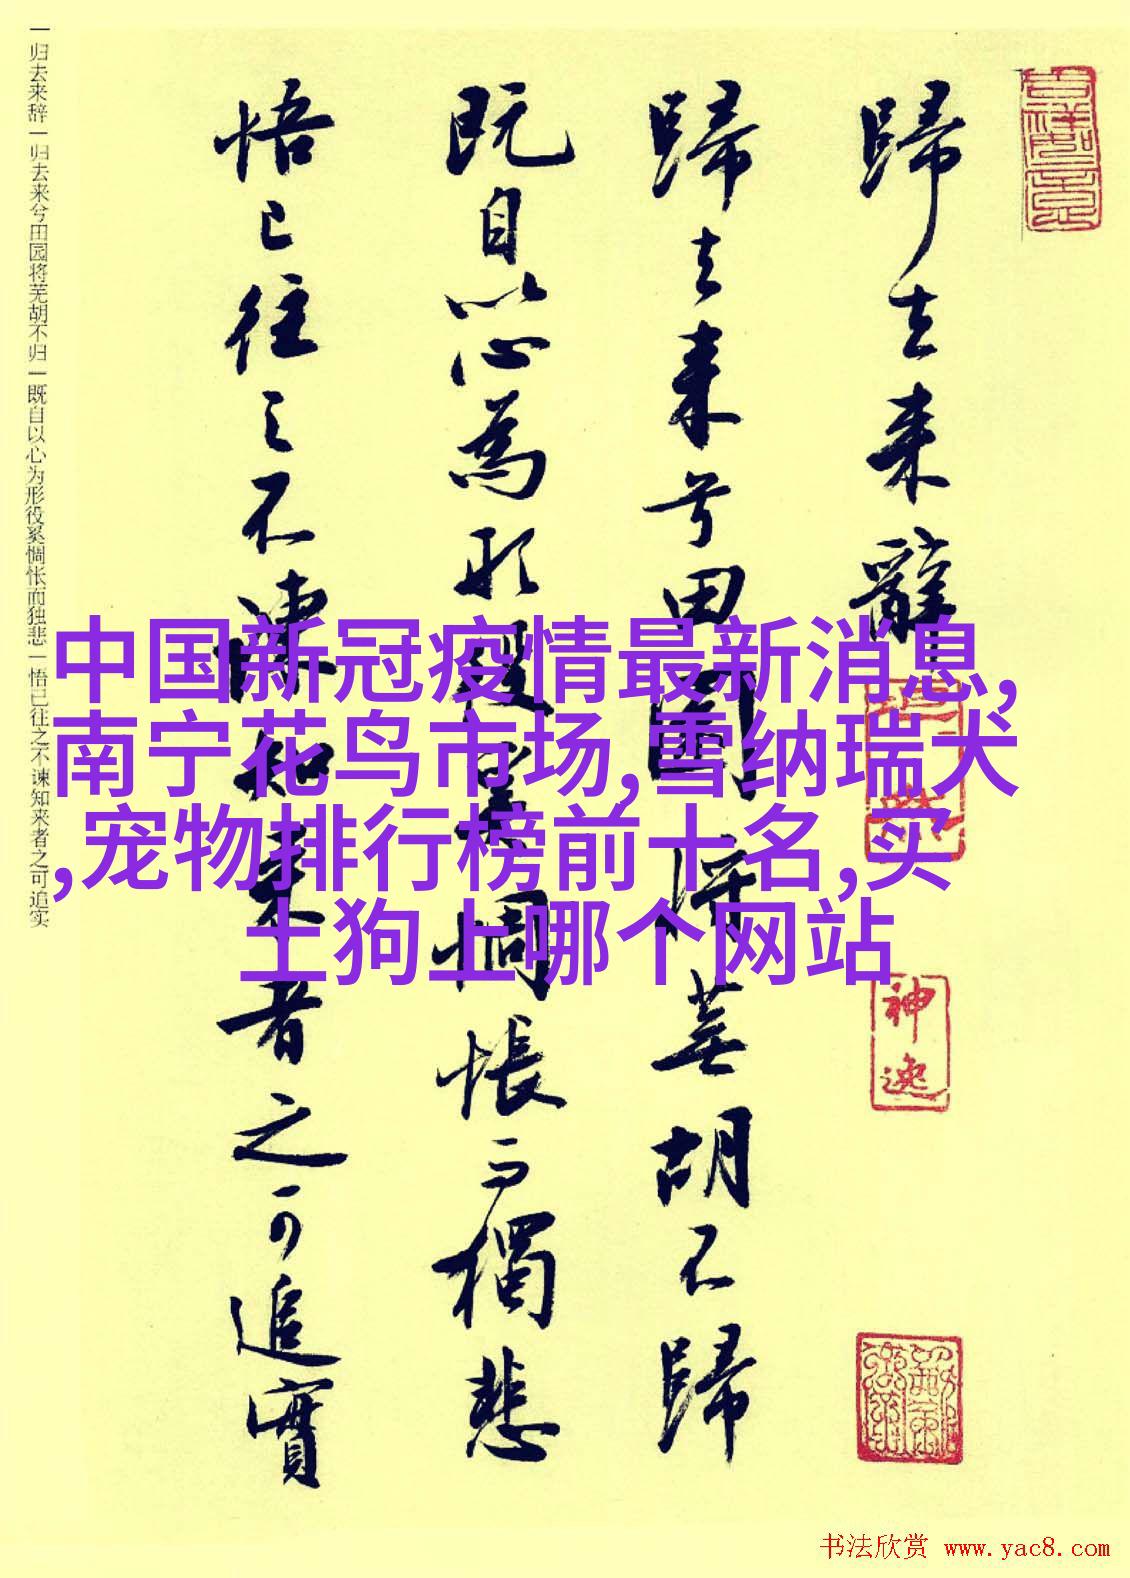 吉祥如意
歸去来辭
神逸
歸去来兮田園将蕪胡不歸
既自以心為形役奚惆悵而獨悲
悟已往之不諫知来者之可追實
一归去来辞一归去来兮田园将芜胡不归一既自以心为形役奚惆怅而独悲一悟已往之不谏知来者之可追实
中国新冠疫情最新消息,
南宁花鸟市场,雪纳瑞犬
,宠物排行榜前十名,买
土狗上哪个网站
书法欣赏 www.yac8.com